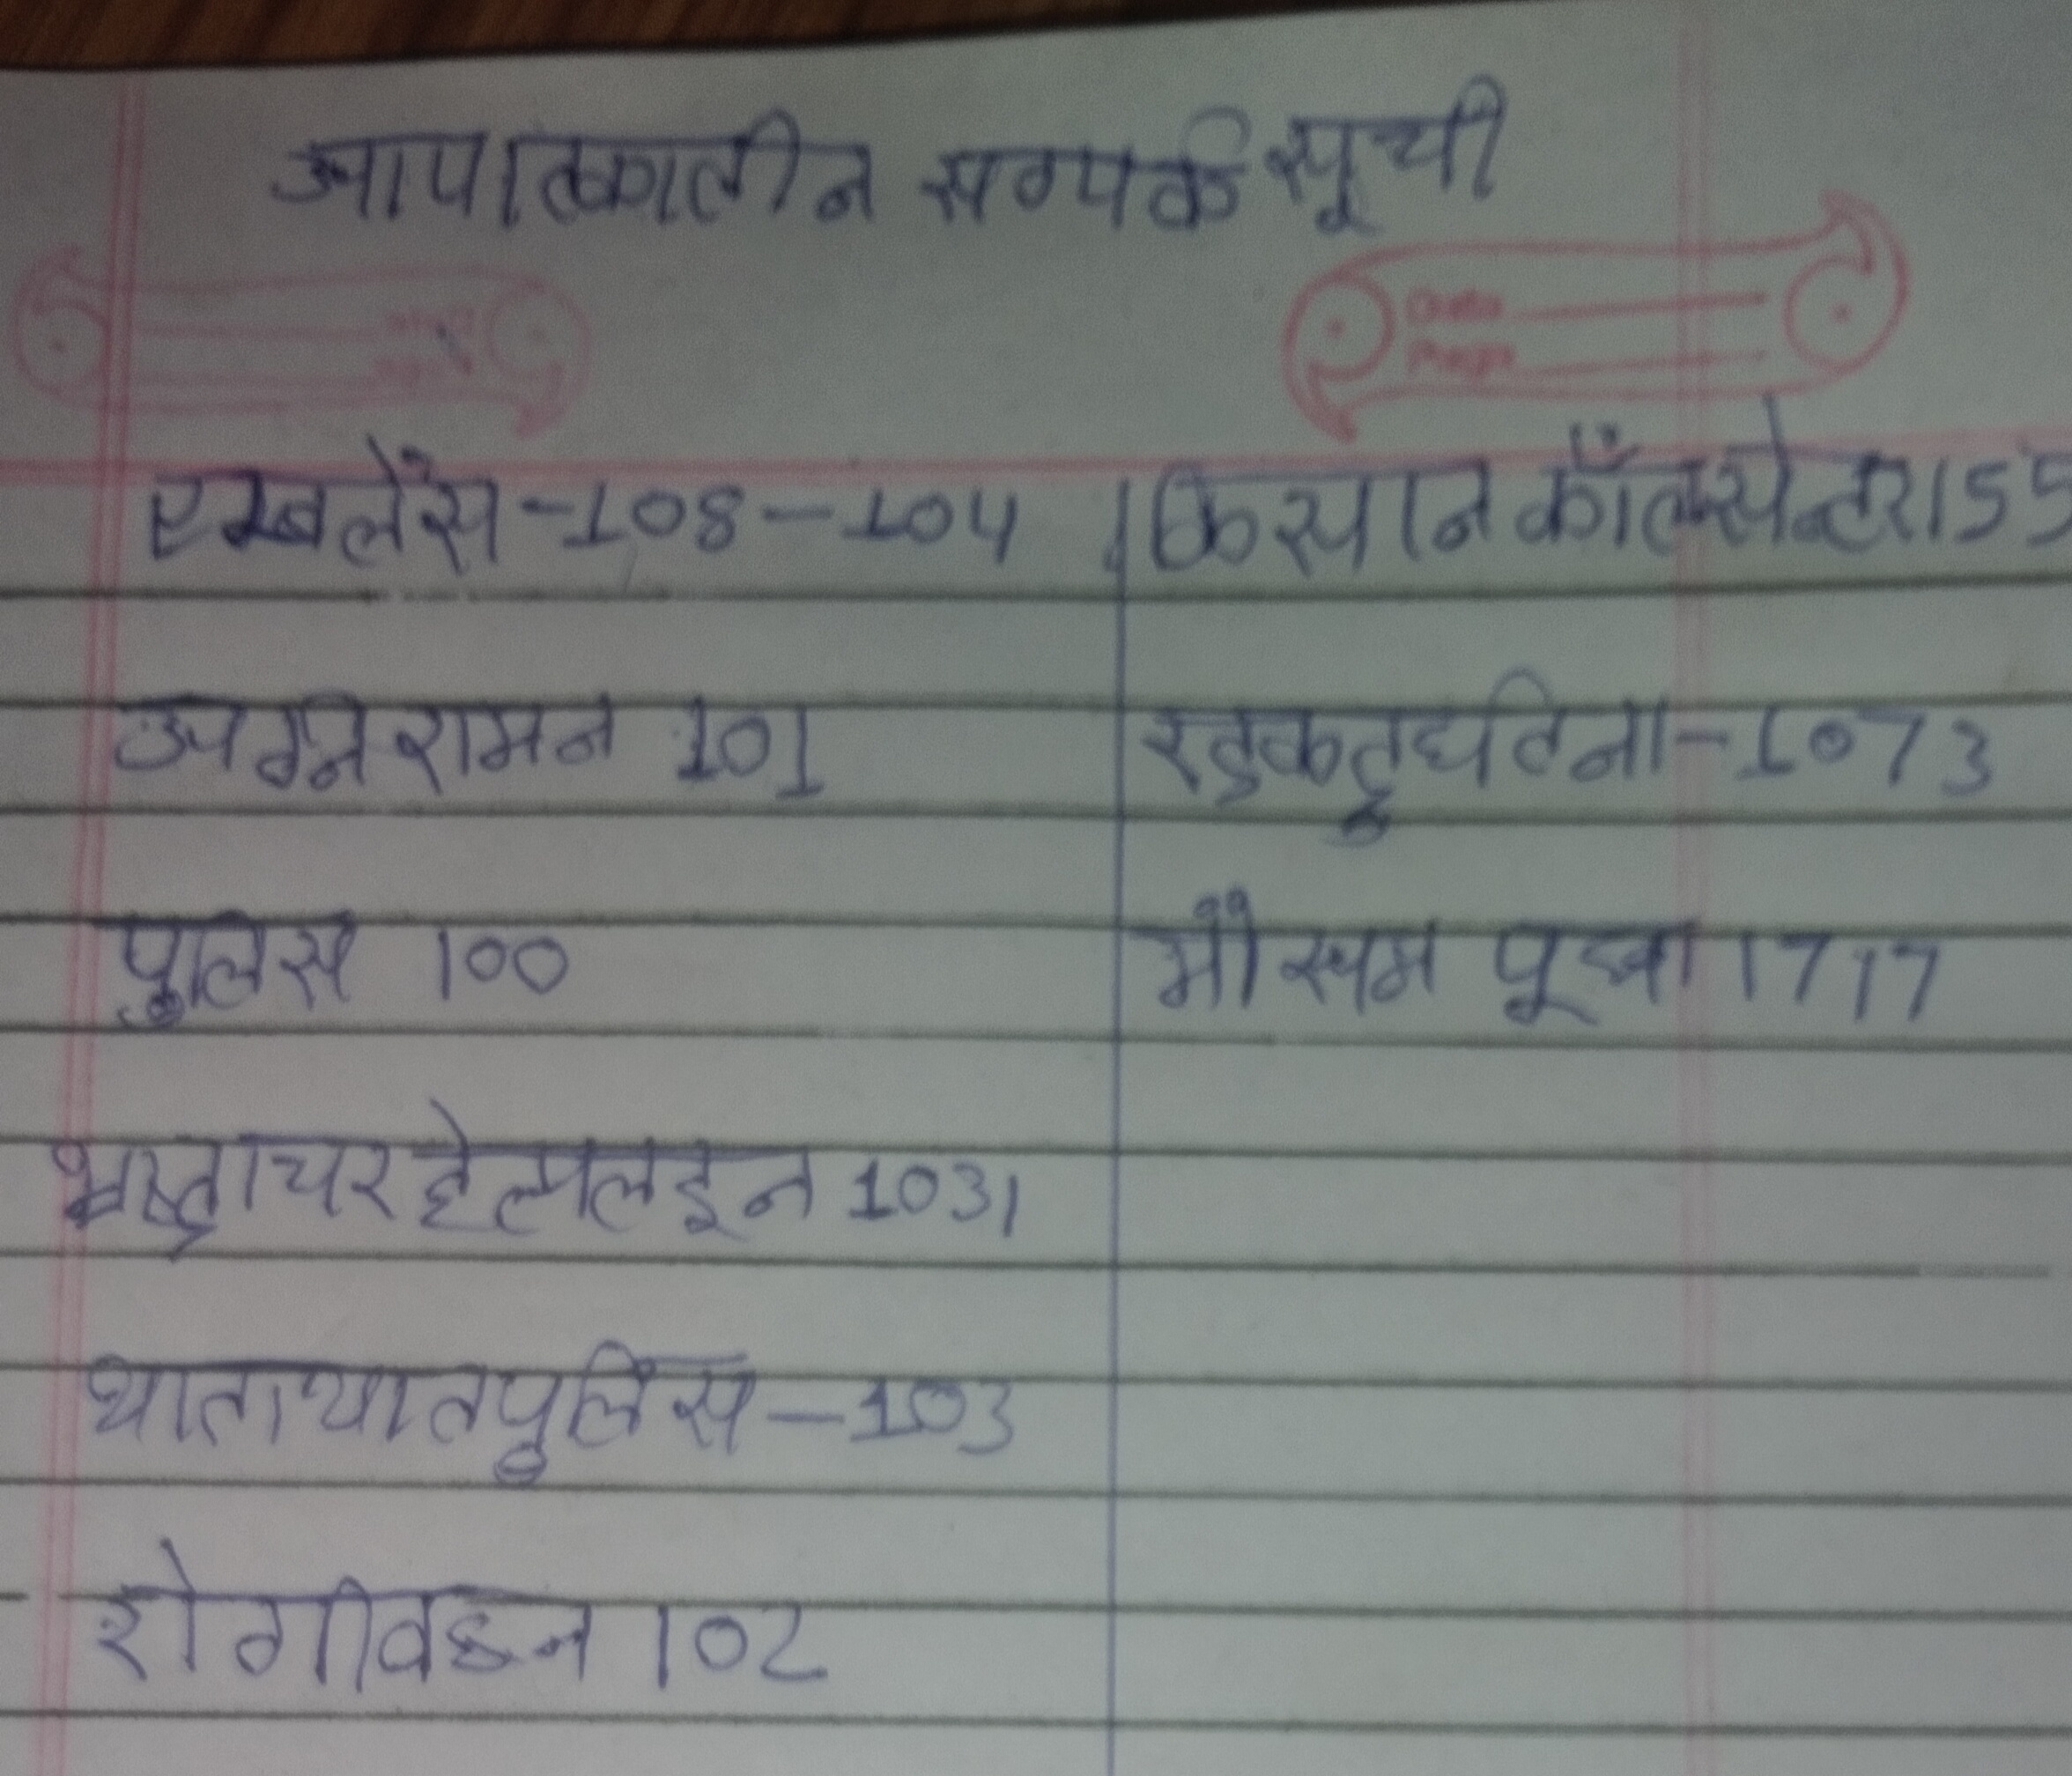 आपात्कालीन सम्पर्क सूची
Date
Page
एम्बलेंस - 108 - 104
किसान कॉल सेन्टर 155
अग्नि शमन 101
सड़क दुर्घटना - 1073
पुलिस 100
मौसम पूछा 1717
भ्रष्टाचर हेल्पलइन 1031
यातायात पुलिस - 103
रोगीवहन 102